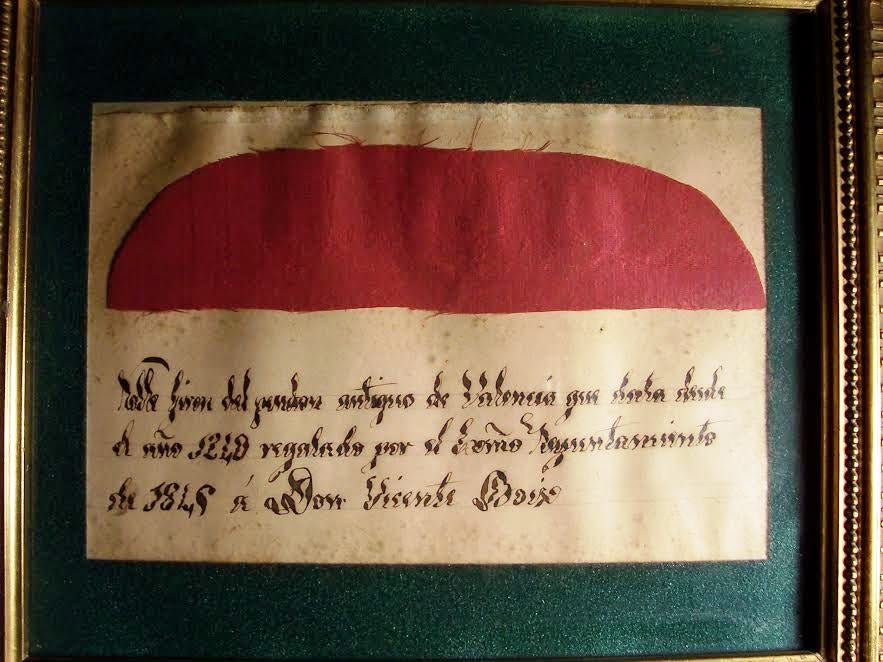 Noble giron del pendon antiguo de Valencia que data desde
el año 1240 regalado por el Excmo Ayuntamiento
de 1845 á Don Vicente Boix